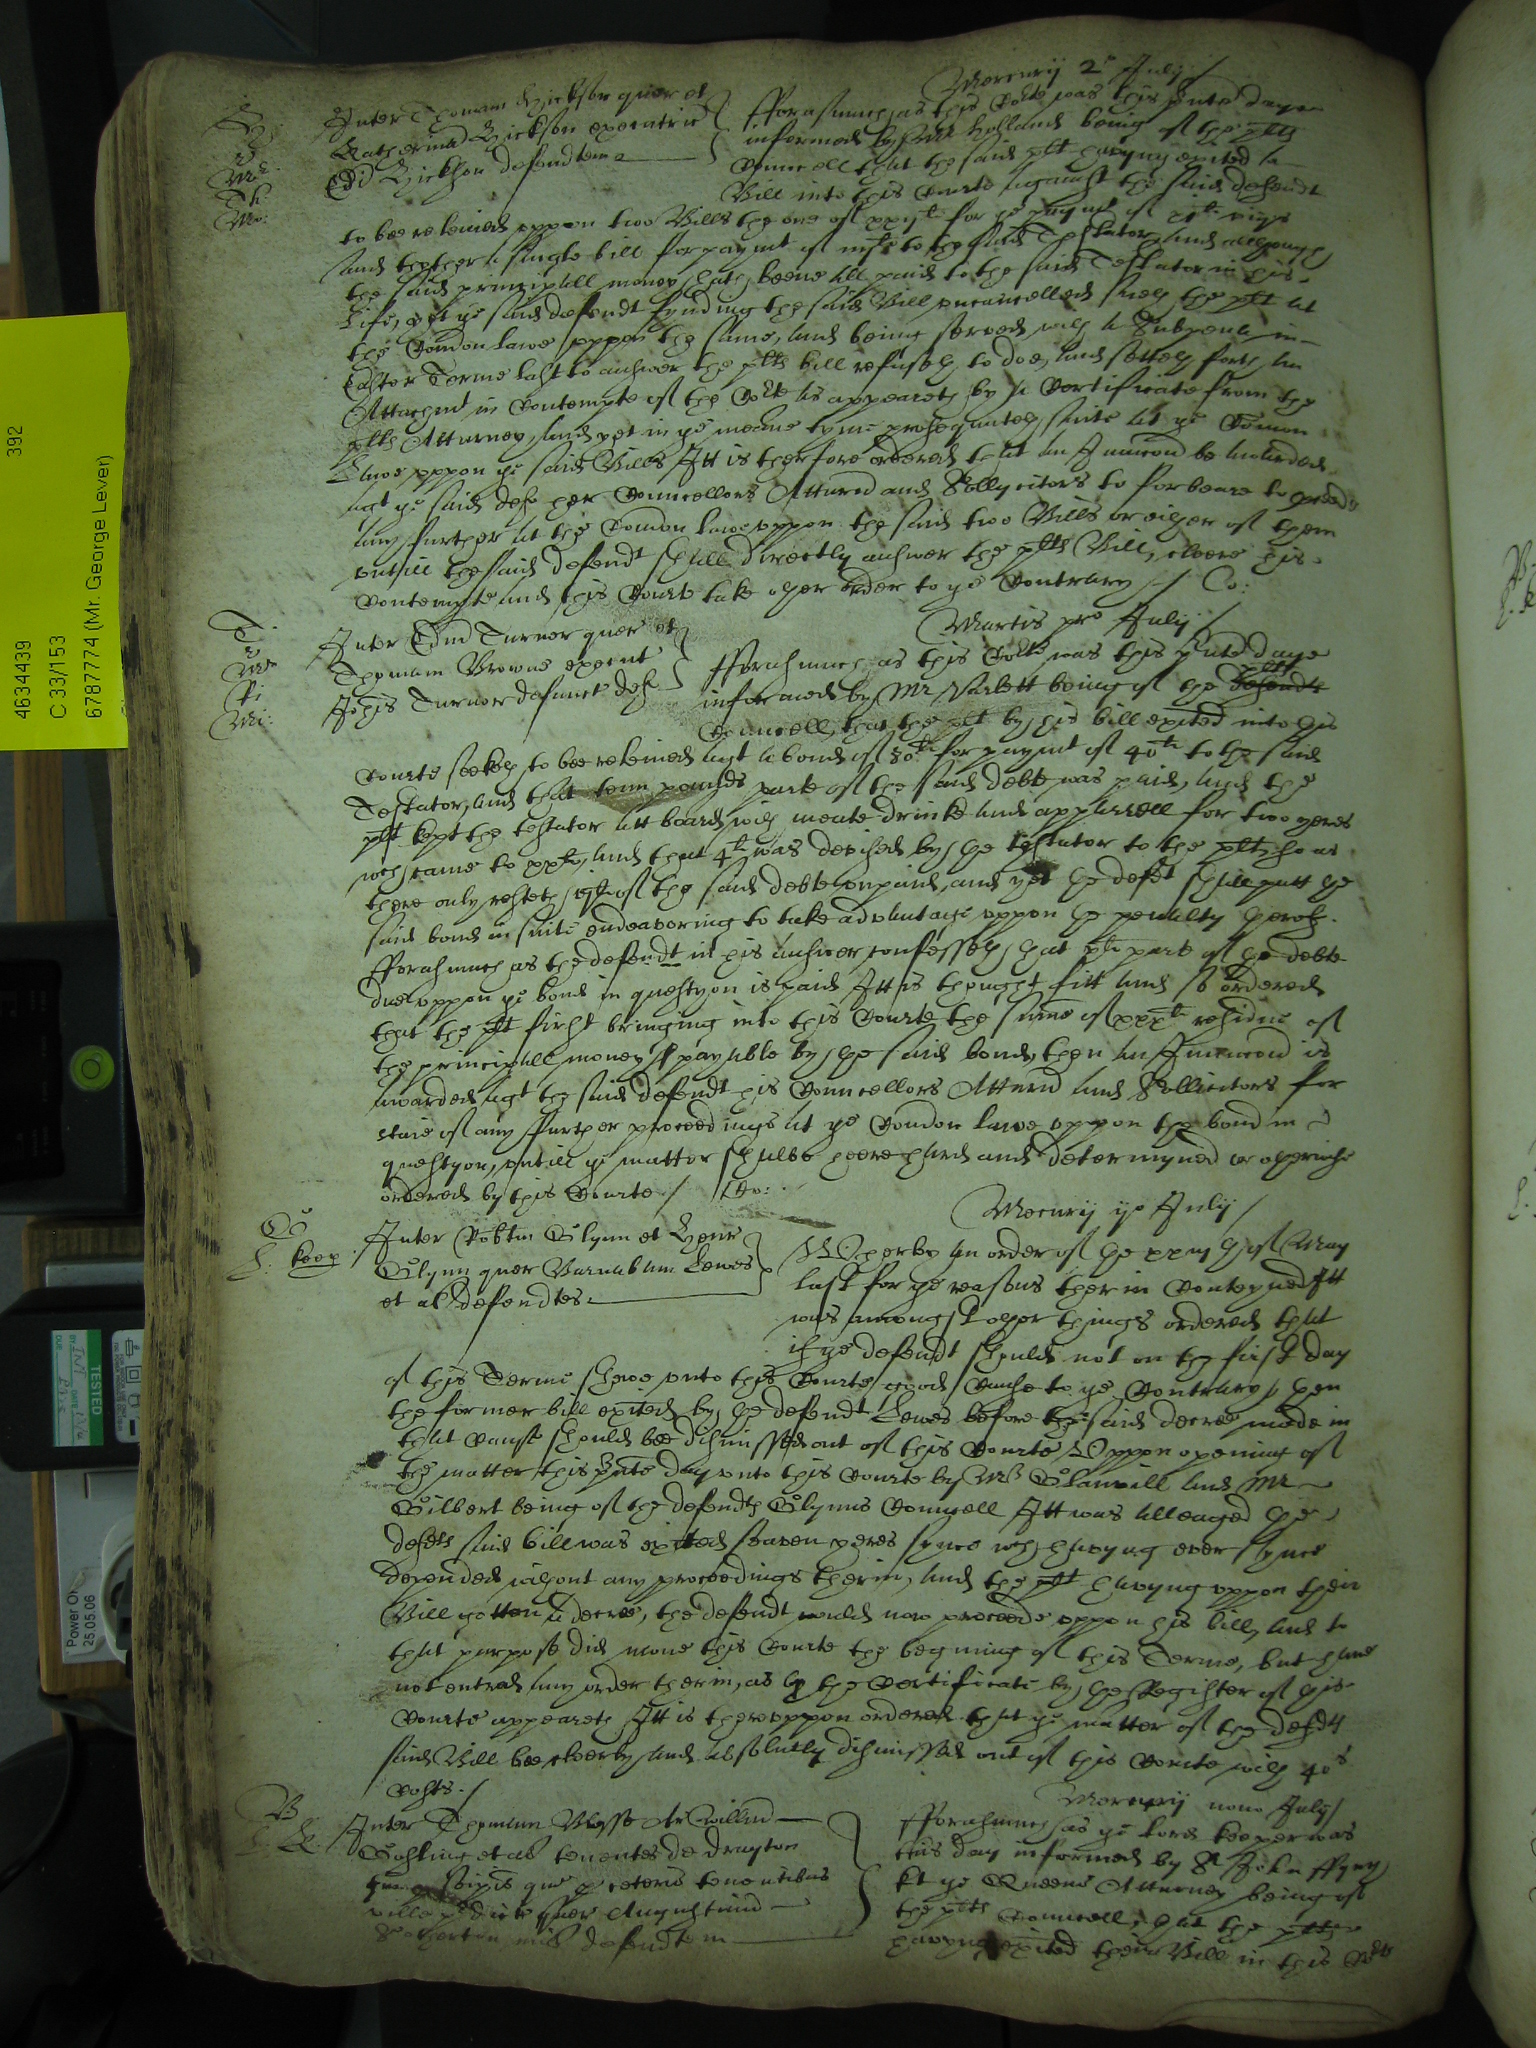 4634439 392
C 33/153
6787774 (Mr. George Lever)
TESTED
Power On
25.05.06
Mercurij 2o Julij /
Inter Thomam Hickson quer et
Katherina Hickson executric
Ed Hickson defendtem
fforasmuch as this Corte was this pnte daye
informed by Mr Holland being of the plts
Councell that the said plt havyng exited a
Bill into this Courte against the said defendt
to bee releived uppon two Bills the one of for ye paymt of
and thother a single bill for paymt of to the said Testator, and although
the said principall money hath beene all paid to the said Testator in his
Life, yet ye said defendt fynding the said Bill uncancelled sueth the plt at
the Comon lawe uppon the same, and being served with a Subpena in
Easter Terme last to answer the plts bill refuseth to doe, and setteth forth an
Attachmt in Contempte of the Corte as appeareth by a Certificate from the
plts Atturney, and yet in ye meane tyme prosequuteth suite at ye Comon
Lawe uppon ye said Bills Itt is therfore ordered that an Iniuncon be awarded
agt ye said def her Councellors Atturn and Sollycitors to forbeare to proceede
any further at the Comon lawe uppon the said two Bills or either of them
untill the said defendt shall directly answer the plts Bill, cleere his
Contempte and this Courte take other order to ye Contrary / Co:
Martis pro Julij /
Inter Edm Turnor quer et
Thomam Browne execut
Turnor defunct def
fforasmuch as this Corte was this pnte daye
informed by Mr being of the defendts plts
Councell, that the plt by his bill exited into this
Courte seeketh to bee releived agt a bond of 80li for paymt of 40li to the said
Testator, and that tenn pounds parte of the said debte was paid, and the
plt kept the testator att board with meate drinke and apparrell for two yeres
wch came to xxli, and that 4li was devised by the testator to the plt, so as
there only resteth of the said debte unpaid, and yet the defet shall putt the
said bond in suite endeavoring to take advantage uppon the penalty therof.
fforasmuch as the defendt in his answer confesseth that xli parte of the debte
due uppon ye bond in questyon is paid Itt is thought fitt and so ordered
that the plt first bringing into this Courte the summe of xxxli residue of
the principall money payable by the said bond, then an Iniuncon is
awarded agt the said defendt his Councellors Atturn and Sollicitors for
staie of any further proceedings at ye Comon lawe uppon the bond in
questyon, untill ye matter shalbe heere heard and determyned or otherwise
ordered by this Courte /
Mercurij ixo Julij /
Inter Robtm Glynn et Henr
Glynn quer Barnabam Lewes
et al defendtes
L: keep
Wherby an order of the xxiijth of May
last for ye reasons therin Conteyned Itt
was amongst other things ordered that
if ye defendt should not on the first day
of this Terme shewe unto this Courte good Cause to ye Contrary, then
the former bill exited by the defendt Lewes before the said decree made in
that cause should bee dismissed out of this Courte, Uppon opening of
the matter this pnte day unto this Courte by Mr Glanvill and Mr
Gilbert being of the defendts Glynns Councell Itt was alleaged the
defets said bill was exited seaven yeres synce wch havyng ever synce
depended without any proceedings therin, and the plt havyng uppon their
Bill gotten a decree, the defendt would now proceede uppon his bill, and to
that purpose did move this Courte the begining of this Terme, but have
not entred any order therin, as by the Certificate by the Register of this
Courte appeareth Itt is thereuppon ordered that ye matter of the defdts
said Bill bee cleerly and absolutly dismissed out of this Courte with 40s
Costs. /
Mercurij nono Julij /
Inter Thomam Blysse Ar Willm
Gosling et al tenentes de Drayton
pro seipis que p ceteris tenentibus
ville pdict quer Augustinu
mil defendtem
fforasmuch as ye lord keeper was
this day informed by Sr John ffyny
kt ye Queens Atturney being of
the plts Councell, that the plts
havyng exited their Bill in this Corte